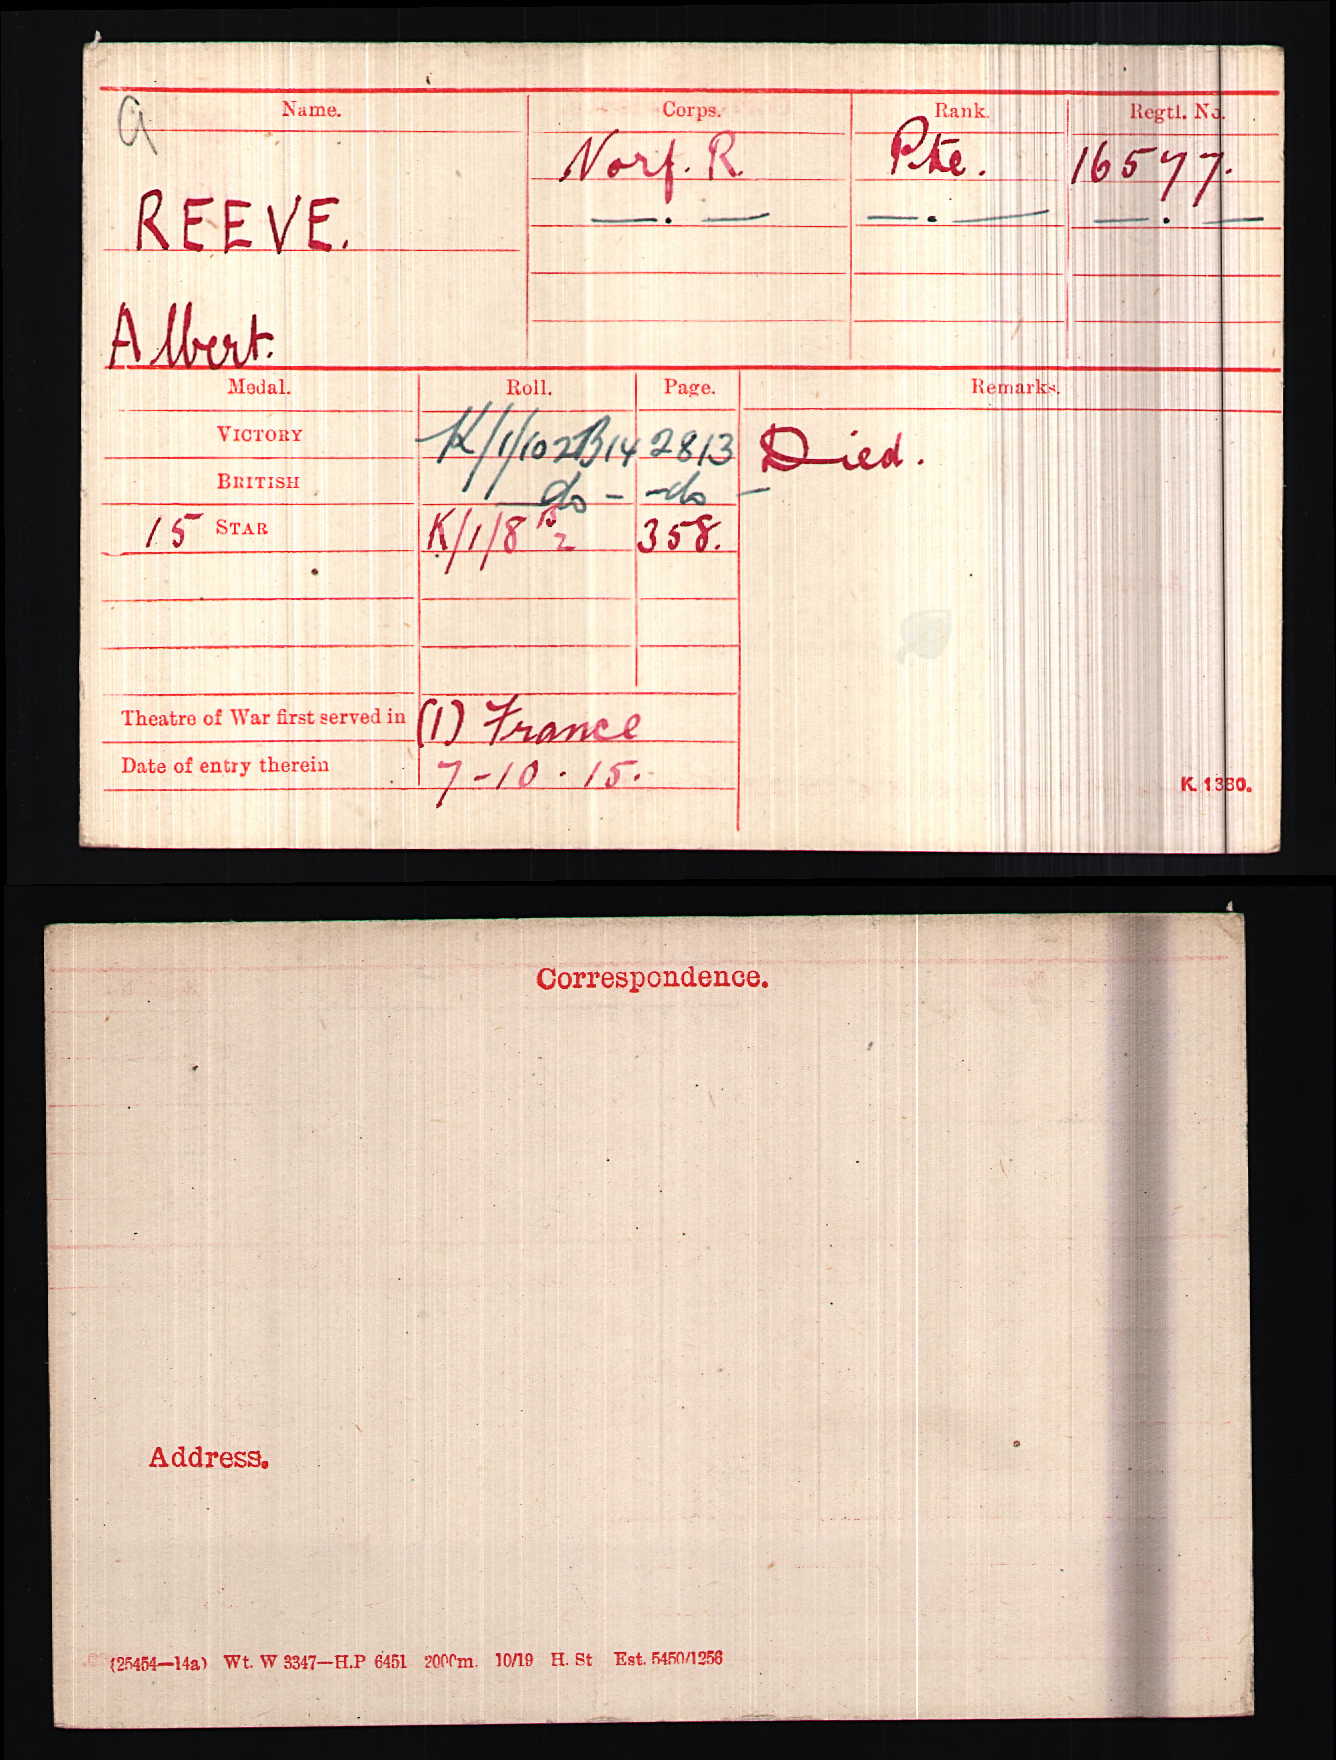 a
Name. Corps. Rank. Regtl. No.
Norf. R. Pte. 16577.
REEVE. — . — — . — — . —
Albert.
Medal. Roll. Page. Remarks.
VICTORY K/1/102B14 2813 Died.
BRITISH — do — — do —
15 STAR K/1/8 B2 358.
Theatre of War first served in (1) France
Date of entry therein 7-10.15.
K. 1380.
Correspondence.
Address.
(25454—14a) Wt. W 3347—H.P 6451 2000m. 10/19 H. St Est. 5450/1256